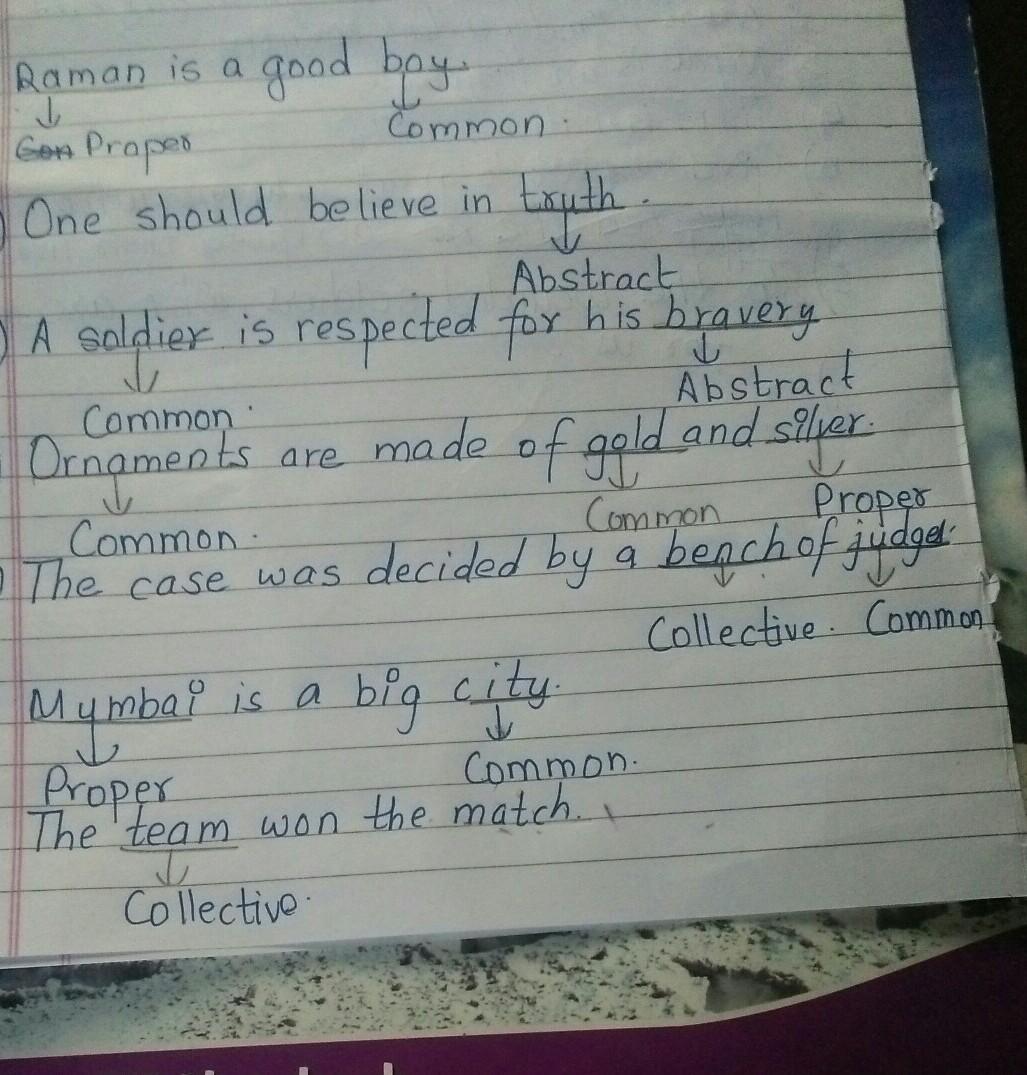 Raman is a good boy.
Proper Common.
One should believe in truth.
Abstract
A soldier is respected for his bravery
Common. Abstract
Ornaments are made of gold and silver.
Common. Common Proper
The case was decided by a bench of judges.
Collective. Common
Mumbai is a big city.
Proper Common.
The team won the match.
Collective.